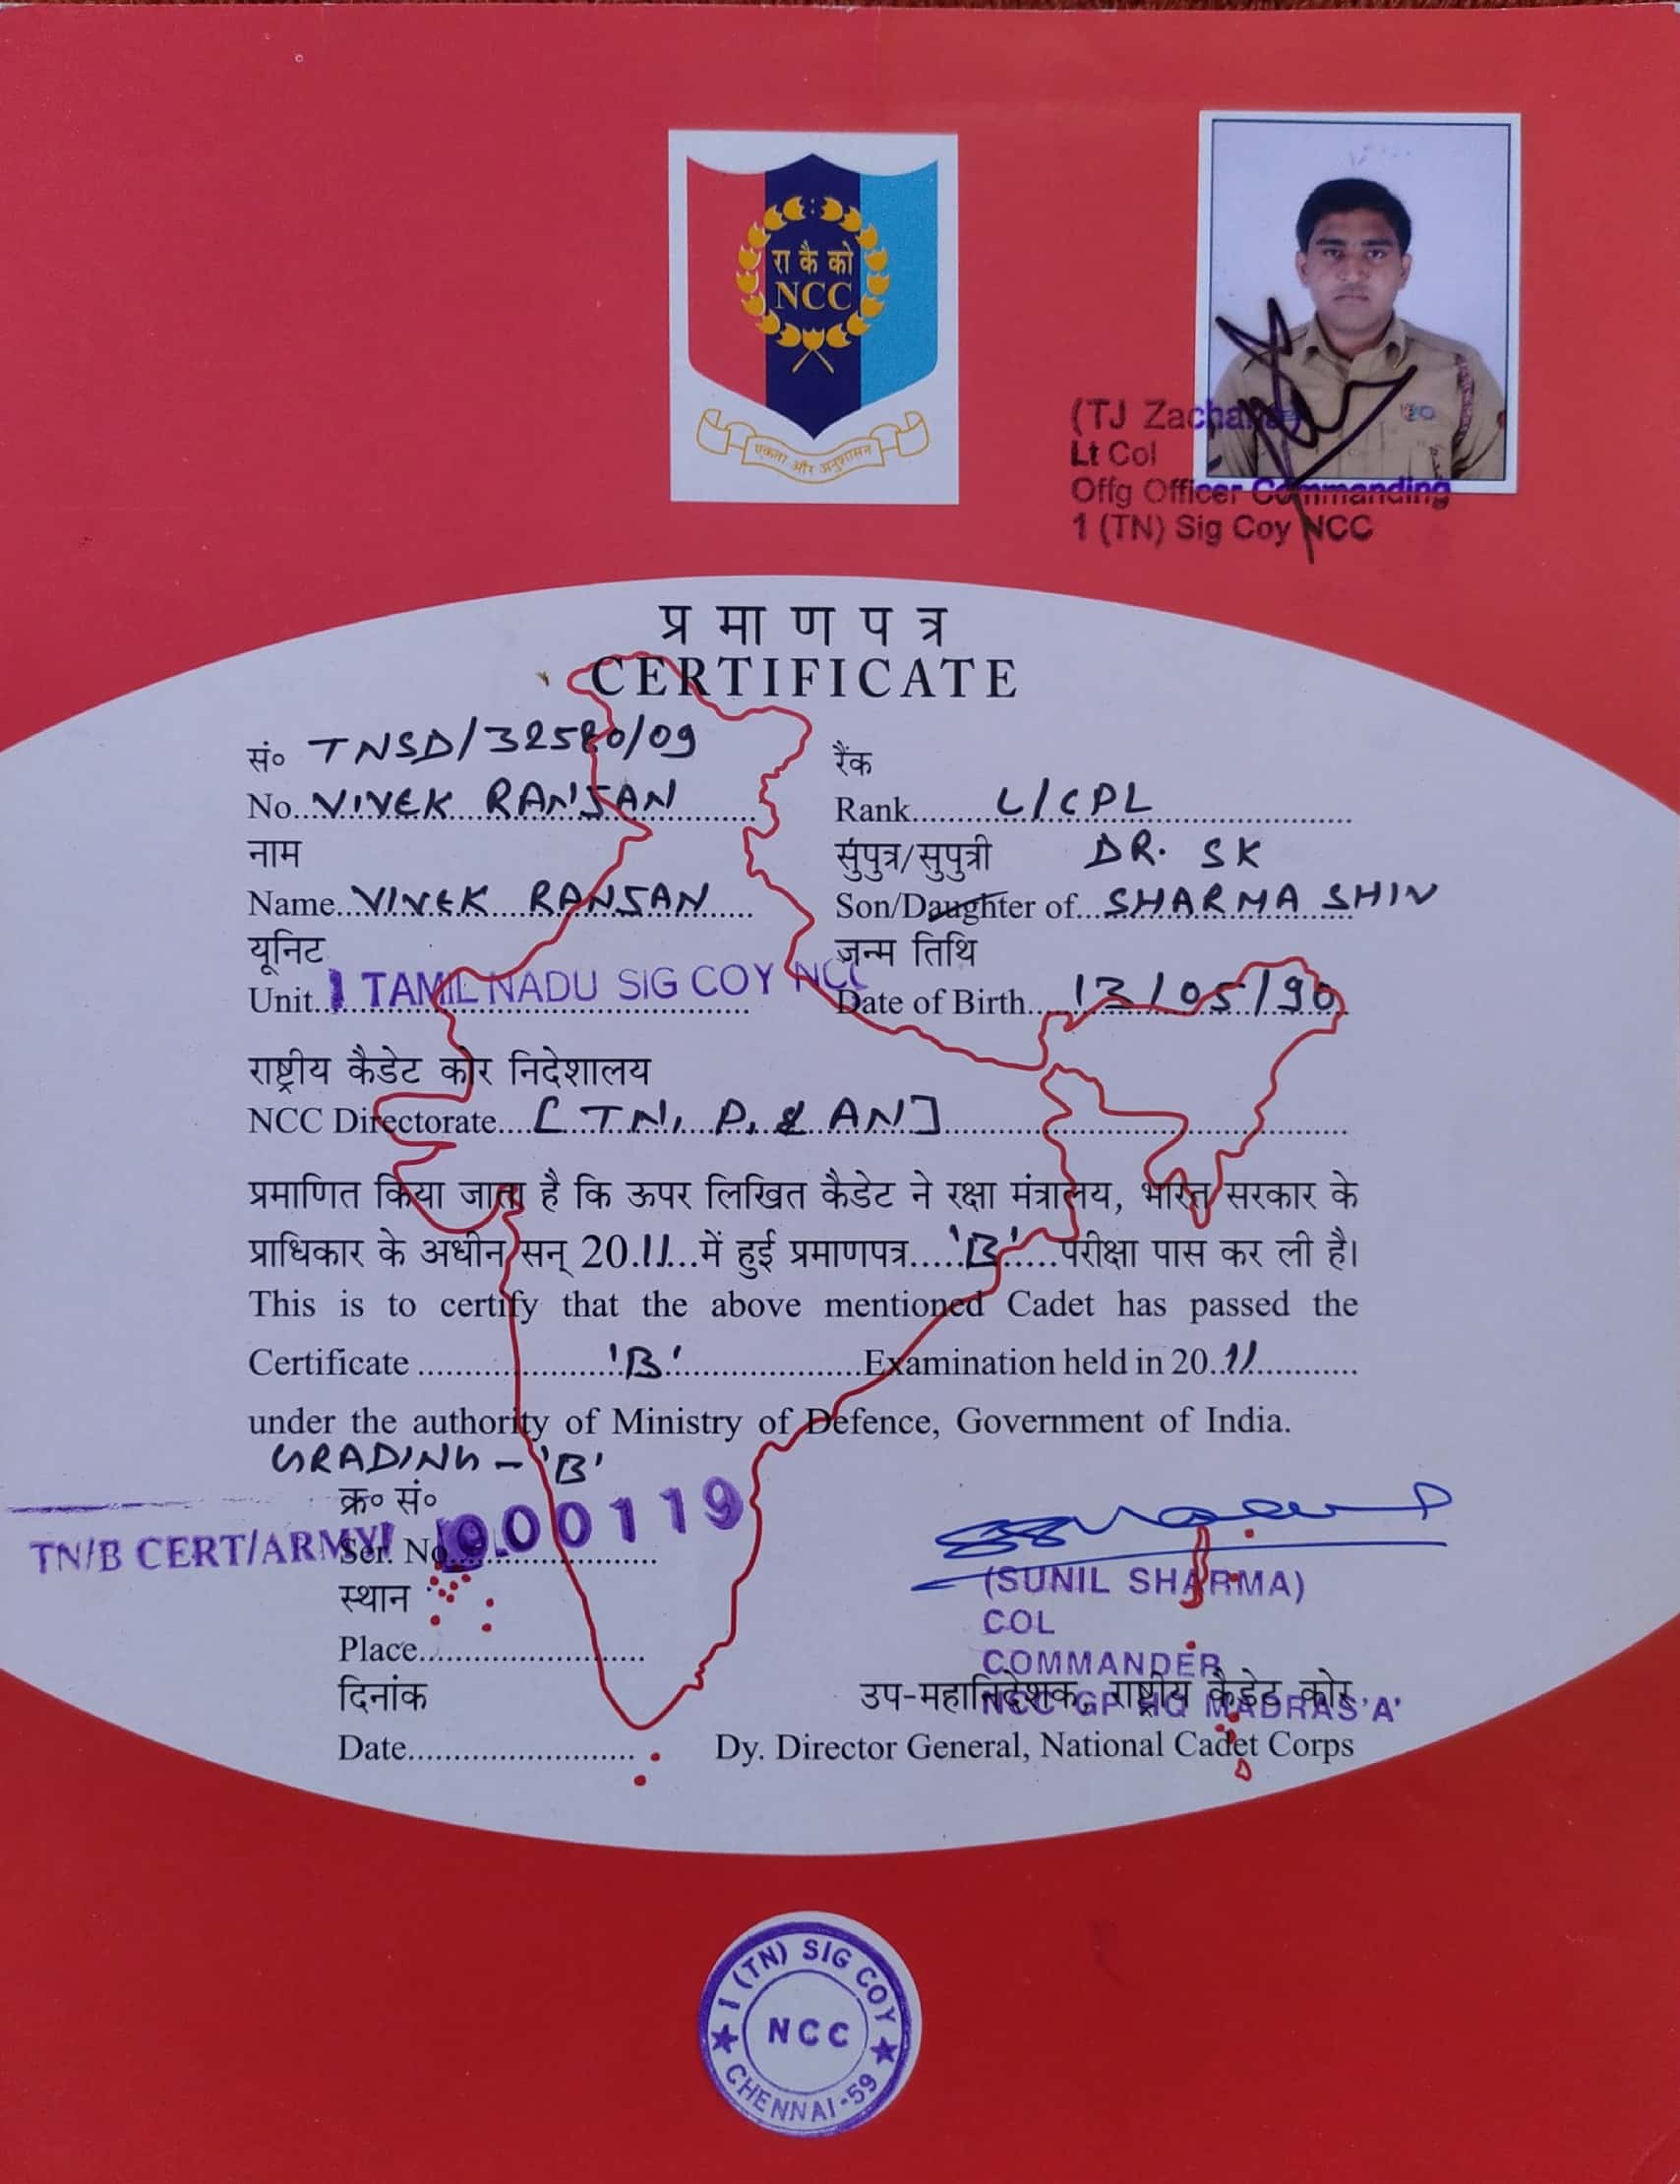 रा कै को
NCC
एकता और अनुशासन
(TJ Zacha
Lt Col
Offg Officer Commanding
1 (TN) Sig Coy NCC
प्रमाणपत्र
CERTIFICATE
सं० TNSD/32580/09
No. VIVEK RANJAN
रैंक
Rank L/CPL
नाम
Name VIVEK RANJAN
सुपुत्र/सुपुत्री DR. SK
Son/Daughter of SHARMA SHIV
यूनिट
Unit 1 TAMIL NADU SIG COY NCC
जन्म तिथि
Date of Birth 12/05/90
राष्ट्रीय कैडेट कोर निदेशालय
NCC Directorate [TN, P, & AN]
प्रमाणित किया जाता है कि ऊपर लिखित कैडेट ने रक्षा मंत्रालय, भारत सरकार के
प्राधिकार के अधीन सन् 20.11...में हुई प्रमाणपत्र.....'B'.....परीक्षा पास कर ली है।
This is to certify that the above mentioned Cadet has passed the
Certificate 'B' Examination held in 20.11
under the authority of Ministry of Defence, Government of India.
GRADING - 'B'
क्र० सं०
TN/B CERT/ARMY/ Ser. No. 000119
स्थान
Place
दिनांक
Date
(SUNIL SHARMA)
COL
COMMANDER
NCC GP HQ MADRAS 'A'
उप-महानिदेशक, राष्ट्रीय कैडेट कोर
Dy. Director General, National Cadet Corps
1 (TN) SIG COY
NCC
CHENNAI-59